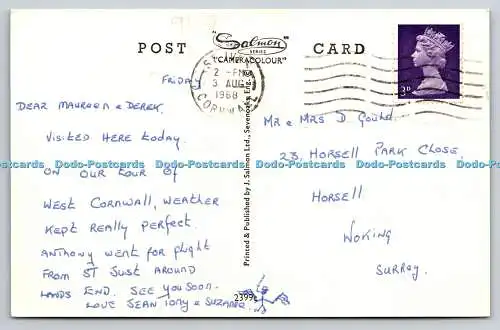 POST
"Salmon"
SERIES
"CAMERACOLOUR"
CARD
2 - PM
5 AUG
1968
CORNWALL
3D
FRIDAY
DEAR MAUREEN & DEREK,
VISITED HERE today
ON OUR TOUR OF
WEST CORNWALL, WEATHER
KEPT REALLY PERFECT.
ANTHONY WENT FOR FLIGHT
FROM ST JUST AROUND
LANDS END. SEE YOU SOON.
LOVE JEAN TONY & SUZANNE.
Printed & Published by J. Salmon Ltd., Sevenoaks, Eng.
2399c
MR & MRS D GOULD.
23, HORSELL PARK CLOSE
HORSELL
WOKING
SURREY.
Dodo-Postcards Dodo-Postcards Dodo-Postcards Dodo-Postcards Dodo-Postcards Dodo-Postcards